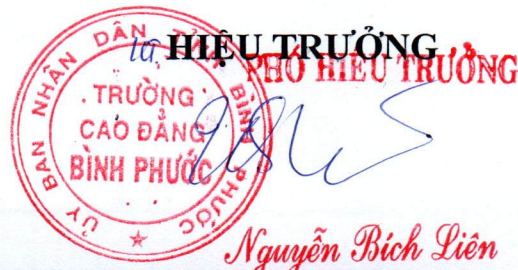 HIỆU TRƯỞNG
PHÓ HIỆU TRƯỞNG
ỦY BAN NHÂN DÂN TỈNH BÌNH PHƯỚC
TRƯỜNG
CAO ĐẲNG
BÌNH PHƯỚC
Nguyễn Bích Liên